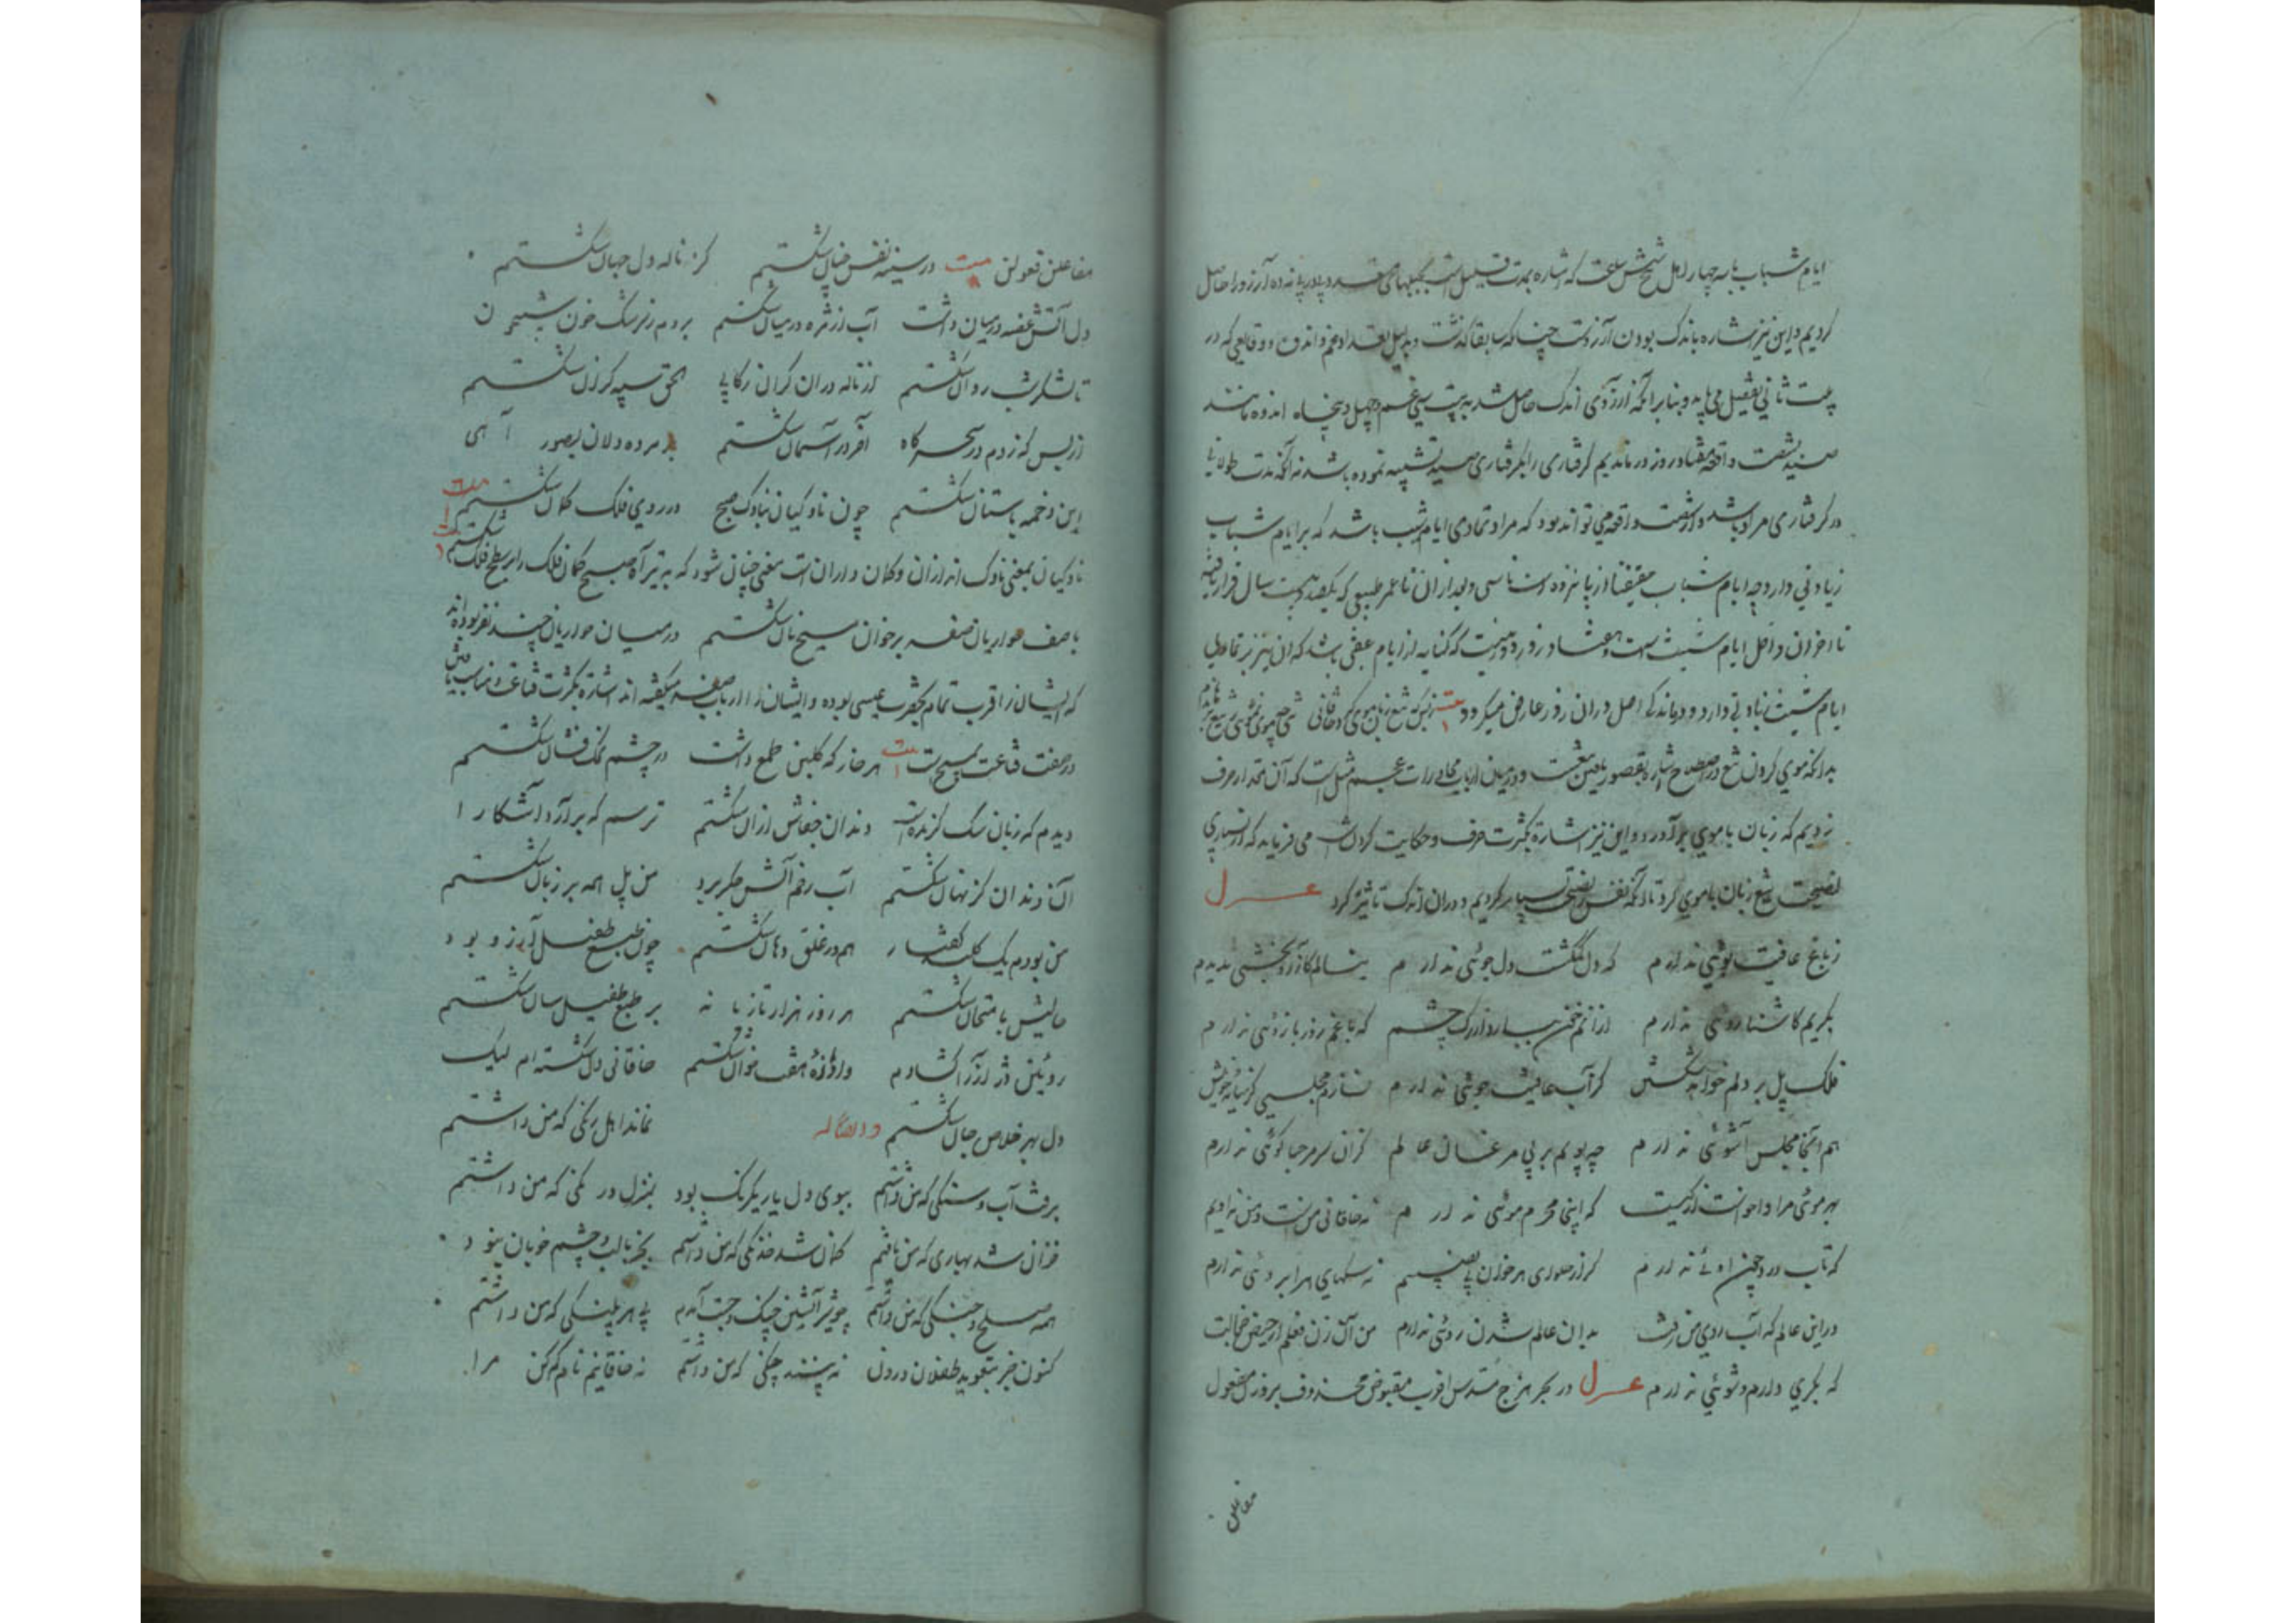 ایام شباب تا به چهار اهل شیخش ساعت که اشاره بمدت قلیل است بحیلهای می شد و پا در پا نه ده آرزو را حاصل
کردیم و این نیز اشاره باندک بودن آرزوست چنانکه سابقا گذشت و بدلیل تعداد غم و اندوه و وقایعی که در
بیت ثانی تفصیل می یابد و بنا بر آنکه از آرزوی اندک حاصل شد به بیست سی غم و چهل و پنجاه اندوه ماننده
صید شصت واقعه هفتاد روز در ماندیم گرفتاری را بگرفتاری صید تشبیه نموده باشد نه آنکه مدت طولانی
در گرفتاری مراد باشد و از شصت واقعه می تواند بود که مراد تمادی ایام شیب باشد که بر ایام شباب
زیادتی دارد چه ایام شباب حقیقتا از پانزده است تا سی و بعد از آن تا عمر طبیعی که یکصد و بیست سال قرار یافته
تا آخر آن داخل ایام شیب است و هفتاد روز
ایام شیب زیادتی دارد و درماندگی اصل در آن روز عارض میگردد بیت
بدانکه موی کردن تیغ در اصطلاح اشاره بقصور یافتن تیغست و در میان ارباب محاورات عجم مثل است که آن مقدار حرف
زدیم که زبان ما موی بر آورد و این نیز اشاره بکثرت حرف و حکایت کردن است می فرماید که از بسیاری
نصیحت تیغ زبان ما موی کرد تا آنکه نفس را نصیحت بسیار کردیم و در آن اندک تاثیر کرد غزل
ز باغ عافیت بوئی ندارم که دل گم گشت و دل جوئی ندارم بنالم کارزو بخشی ندیدم
بگریم کاشنا روئی ندارم از آنم خون همی بارد از رگ چشم که با غم زور بازوئی ندارم
فلک پل بر دلم خواهد شکستن کز آب عافیت جوئی ندارم نسازم مجلسی کز سایه خویش
هم آنجا مجلس آشوئی ندارم چه پویم بر پی مرغان عالم کز آن سر مرحبا گوئی ندارم
بهر موئی مرا واخواست از کیست که اینجا محرم موئی ندارم نه خاقانی من است و من نه اویم
که تاب درد چون اوئی ندارم کز از حلوای هر خوان بی نصیبم نه سکبای هر ابروئی ندارم
در این عالم که آب روی من رفت بدان عالم شدن روئی ندارم من آن زن فعلم از حیض خجالت
که بکری دارم و شوئی ندارم غزل در بحر هزج مسدس اخرب مقبوض محذوف بر وزن مفعول
مفاعلن
مفاعلن فعولن بیت در سینه نفس چنان شکستم کز ناله دل جهان شکستم
دل آتش غصه در میان داشت آب از مژه در میان شکستم بردم ز سرشک خون شبیخون
تا لشکر شب روان شکستم از ناله در آن گران رکابی الحق سپه گران شکستم
از بس که زدم در سحرگاه آخر در آسمان شکستم بر مرده دلان بصور آهی
این دخمه باستان شکستم چون ناوکیان بناوک صبح در روی فلک کلان شکستم بیت
ناوکیان بمعنی ناوک اندازان و کلان داران است معنی چنان شود که به تیر آه صبح کمان فلک را بر سطح فلک شکستم
با صف حواریان صفه بر خوان مسیح نان شکستم در میان حواریان چند نفر بوده اند
که ایشان را قرب تمام بحضرت عیسی بوده و ایشان را ارباب صفه میگفته اند اشاره بکثرت قناعت و مناسب یافتن
در صفت قناعت بمسیح است بیت هر خار که گلبن طمع داشت در چشم نمک فشان شکستم
دیدم که زبان سگ گزنده است دندان جفاش از آن شکستم ترسم که بر آرد آشکارا
آن دندان کز نهان شکستم آب رخم آتش جگر برد من پل همه بر زیان شکستم
من بودم یک کلید گفتار هم در غلق دهان شکستم چون طبع طفیل آرزو بود
حالیش بامتحان شکستم هر روز هزار تازیانه بر طبع طفیل سان شکستم
روئین دژ آز را گشادم و آوازه هفت خوان شکستم خاقانی دل شکسته ام لیک
دل بهر خلاص جان شکستم وله ایضا نماند اهل رنگی که من داشتم
برفت آب و سنگی که من داشتم ببوی دل یار یکرنگ بود بمنزل درنگی که من داشتم
خزان شد بهاری که من یافتم کمان شد خدنگی که من داشتم بجز با لب و چشم خوبان نبود
همه صلح و جنگی که من داشتم چو شیر آتشین چنگ و چست آمدم پی هر پلنگی که من داشتم
کنون جز بتعویذ طفلان درون نه پسندند چنگی که من داشتم نه خاقانیم نام گم کن مرا